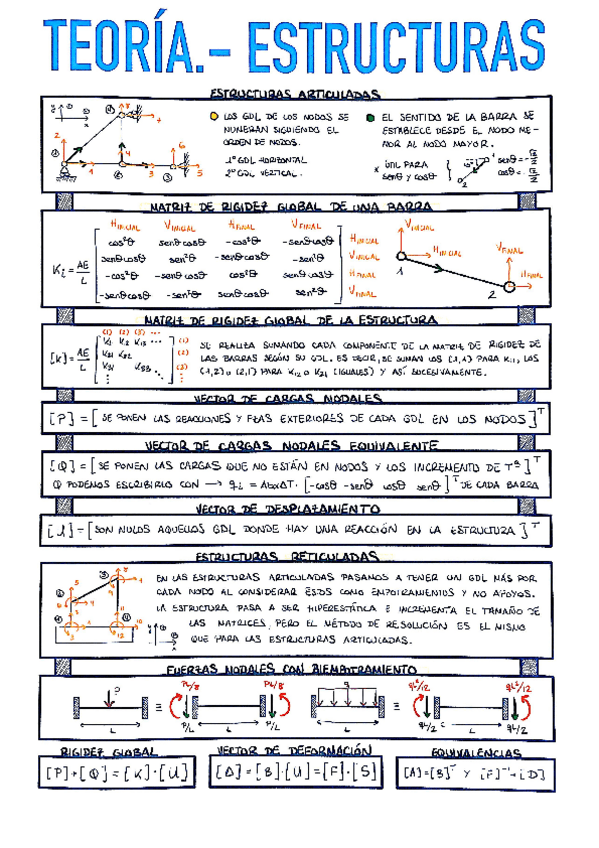 TEORÍA.- ESTRUCTURAS
ESTRUCTURAS ARTICULADAS
LOS GDL DE LOS NODOS SE
NUMERAN SIGUIENDO EL
ORDEN DE NODOS.
1º GDL HORIZONTAL
2º GDL VERTICAL.
EL SENTIDO DE LA BARRA SE
ESTABLECE DESDE EL NODO ME-
NOR AL NODO MAYOR.
* ÚTIL PARA
senθ y cosθ
MATRIZ DE RIGIDEZ GLOBAL DE UNA BARRA
HINICIAL VINICIAL HFINAL VFINAL
cos²θ senθcosθ -cos²θ -senθcosθ HINICIAL
senθcosθ sen²θ -senθcosθ -sen²θ VINICIAL
Ki = AE/L
-cos²θ -senθcosθ cos²θ senθcosθ HFINAL
-senθcosθ -sen²θ senθcosθ sen²θ VFINAL
VINICIAL
HINICIAL
VFINAL
HFINAL
1
2
MATRIZ DE RIGIDEZ GLOBAL DE LA ESTRUCTURA
(1) (2) (3) ...
[K] = AE/L
K11 K12 K13 ... (1)
K21 K22 (2)
K31 K33 ... (3)
SE REALIZA SUMANDO CADA COMPONENTE DE LA MATRIZ DE RIGIDEZ DE
LAS BARRAS SEGÚN SU GDL. ES DECIR, SE SUMAN LOS (1,1) PARA K11, LOS
(1,2) U (2,1) PARA K12 O K21 (IGUALES) Y ASÍ SUCESIVAMENTE.
VECTOR DE CARGAS NODALES
[P] = [SE PONEN LAS REACCIONES Y FZAS EXTERIORES DE CADA GDL EN LOS NODOS]ᵀ
VECTOR DE CARGAS NODALES EQUIVALENTE
[Q] = [SE PONEN LAS CARGAS QUE NO ESTÁN EN NODOS Y LOS INCREMENTO DE Tª]ᵀ
Q PODEMOS ESCRIBIRLO CON → qi = AEαΔT · [-cosθ -senθ cosθ senθ]ᵀ DE CADA BARRA
VECTOR DE DESPLAZAMIENTO
SON NULOS AQUELLOS GDL DONDE HAY UNA REACCIÓN EN LA ESTRUCTURA]ᵀ
ESTRUCTURAS RETICULADAS
EN LAS ESTRUCTURAS ARTICULADAS PASAMOS A TENER UN GDL MÁS POR
CADA NODO AL CONSIDERAR ÉSTOS COMO EMPOTRAMIENTOS Y NO APOYOS.
LA ESTRUCTURA PASA A SER HIPERESTÁTICA E INCREMENTA EL TAMAÑO DE
LAS MATRICES, PERO EL MÉTODO DE RESOLUCIÓN ES EL MISMO
QUE PARA LAS ESTRUCTURAS ARTICULADAS.
FUERZAS NODALES CON BIEMPOTRAMIENTO
P PL/8 PL/8 q qL²/12 qL²/12
L P/L L P/L L qL/2 L qL/2
RIGIDEZ GLOBAL
[P]+[Q]=[K]·[U]
VECTOR DE DEFORMACIÓN
[Δ]=[B]·[U]=[F]·[S]
EQUIVALENCIAS
[A]=[B]ᵀ Y [F]⁻¹=[D]